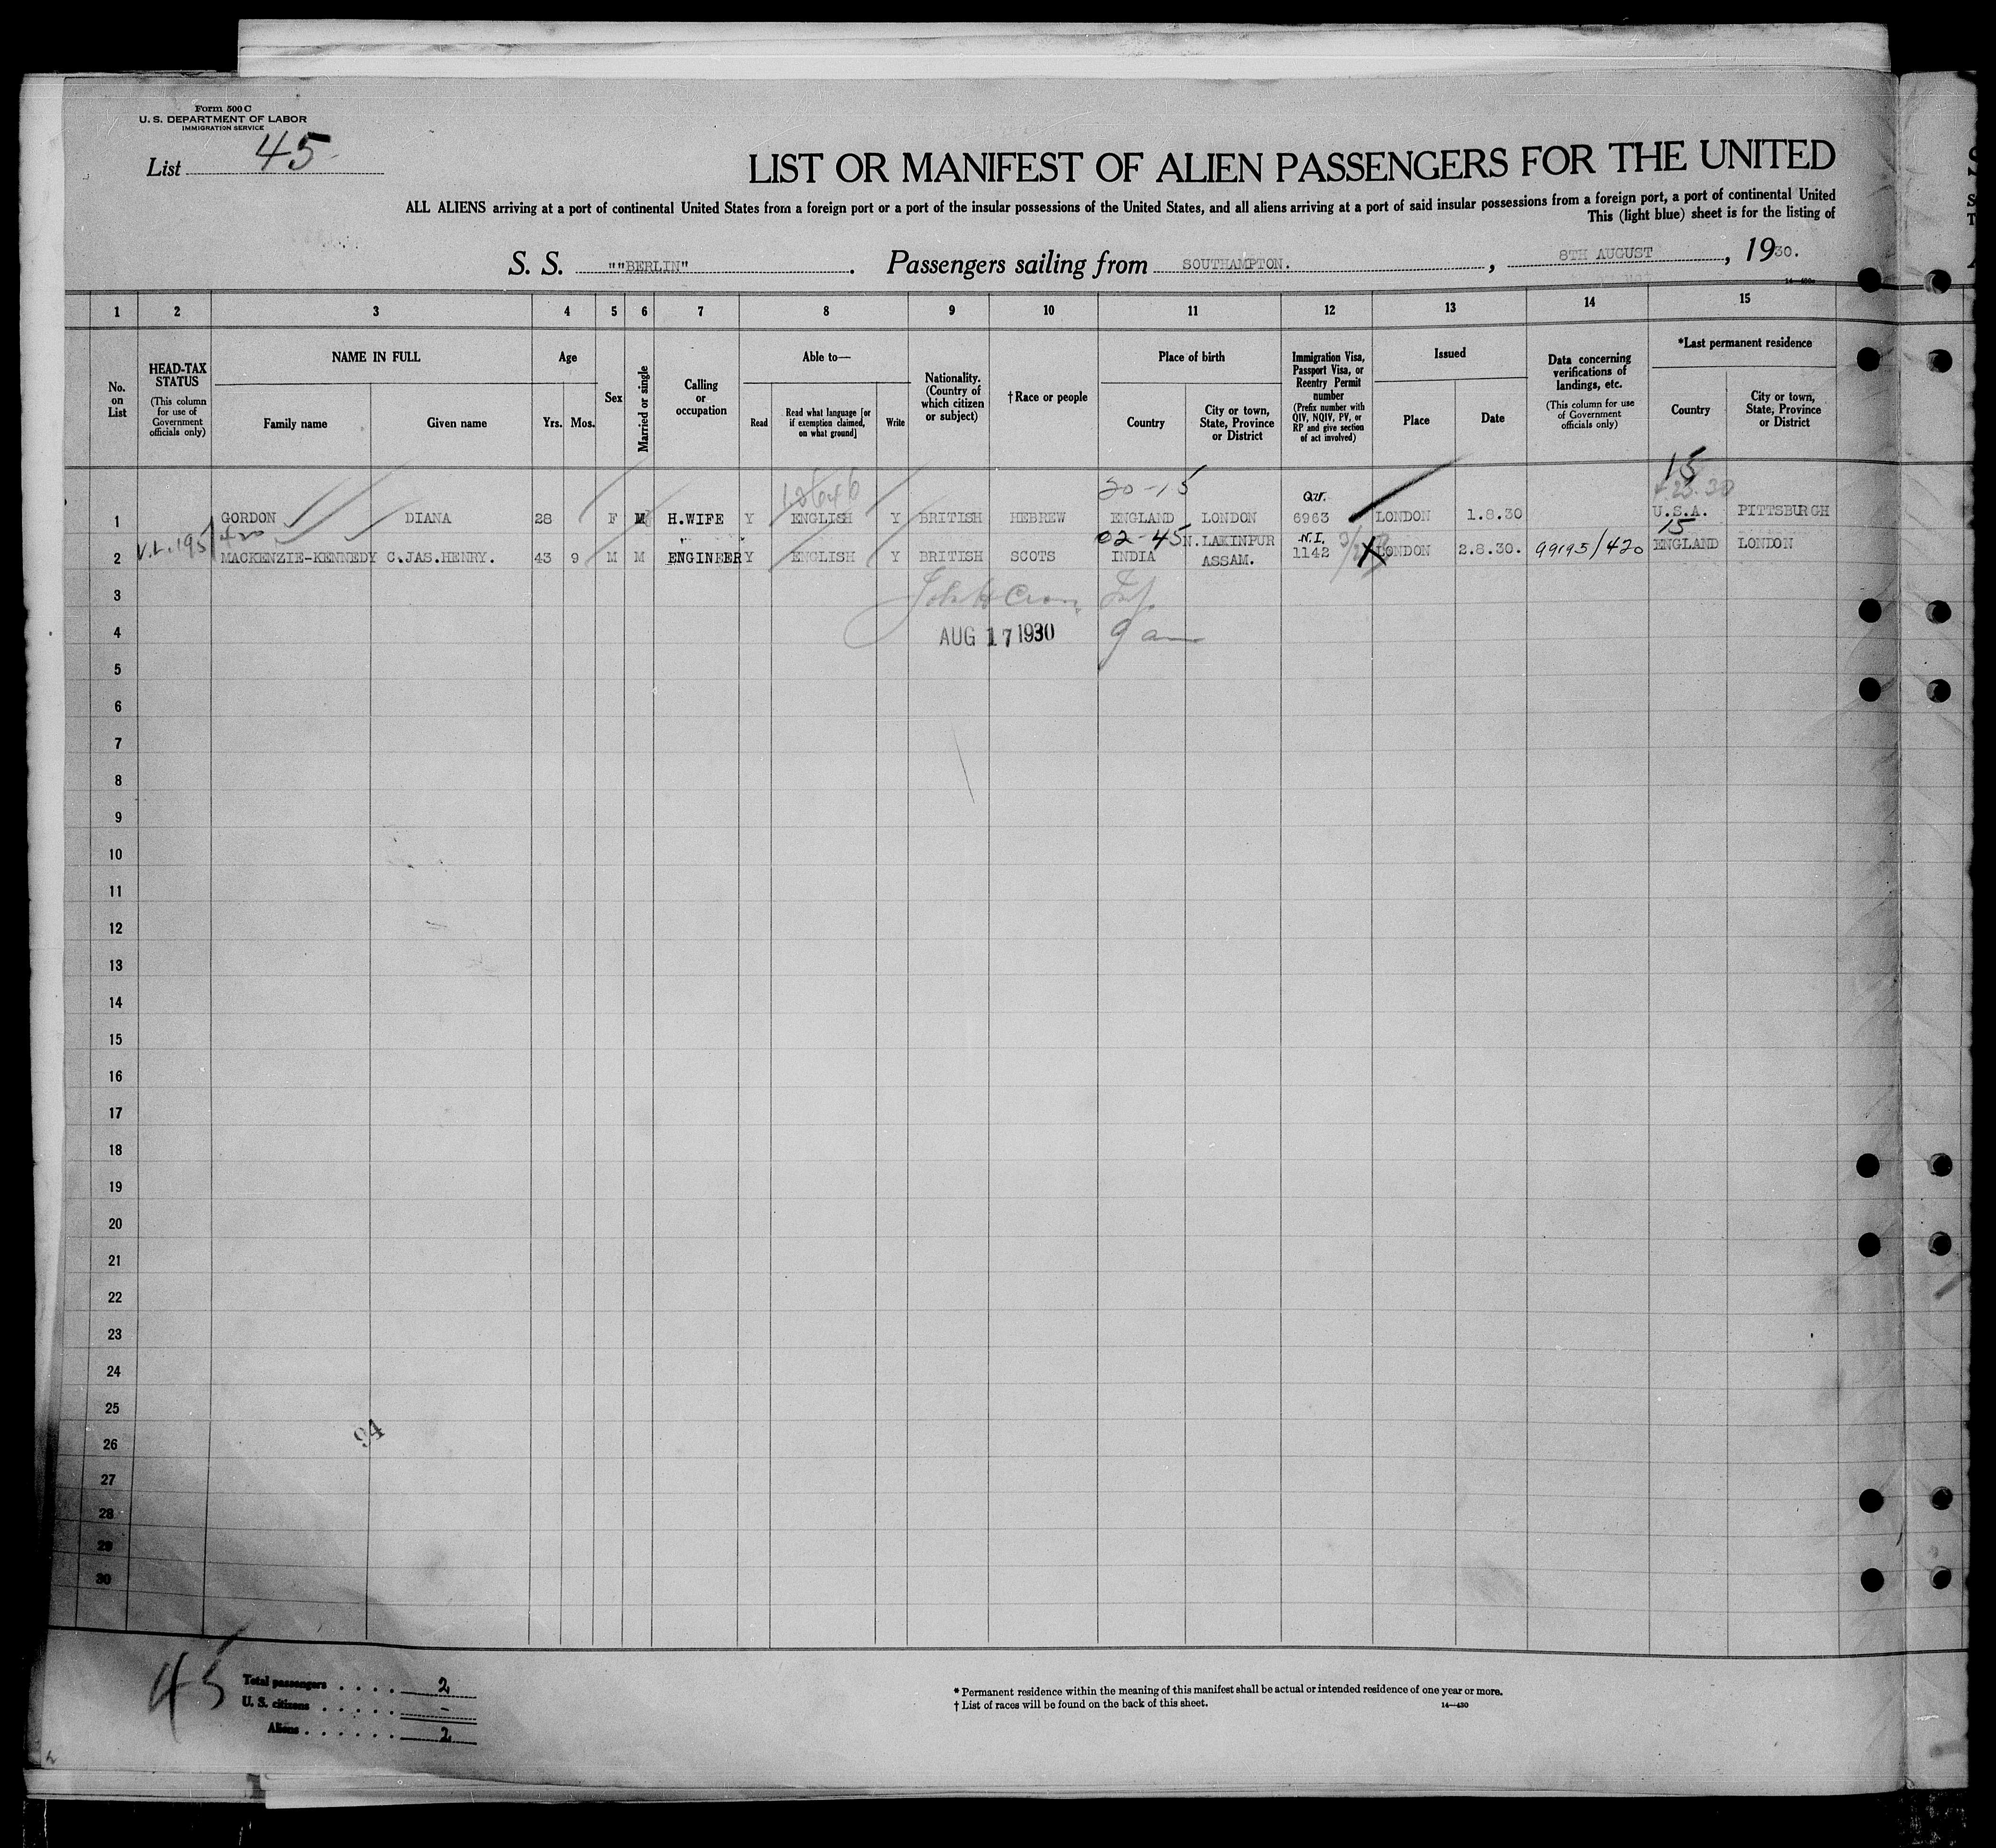 Form 500 C
U. S. DEPARTMENT OF LABOR
IMMIGRATION SERVICE
List 45
LIST OR MANIFEST OF ALIEN PASSENGERS FOR THE UNITED
ALL ALIENS arriving at a port of continental United States from a foreign port or a port of the insular possessions of the United States, and all aliens arriving at a port of said insular possessions from a foreign port, a port of continental United
This (light blue) sheet is for the listing of
S. S. ""BERLIN" . Passengers sailing from SOUTHAMPTON. , 8TH AUGUST , 1930.
1 2 3 4 5 6 7 8 9 10 11 12 13 14 15
No. on List
HEAD-TAX STATUS
(This column for use of Government officials only)
NAME IN FULL
Family name
Given name
Age
Yrs. Mos.
Sex
Married or single
Calling or occupation
Able to—
Read
Read what language [or if exemption claimed, on what ground]
Write
Nationality. (Country of which citizen or subject)
† Race or people
Place of birth
Country
City or town, State, Province or District
Immigration Visa, Passport Visa, or Reentry Permit number
(Prefix number with QIV, NQIV, PV, or RP and give section of act involved)
Issued
Place
Date
Data concerning verifications of landings, etc.
(This column for use of Government officials only)
*Last permanent residence
Country
City or town, State, Province or District
20-15 15
1 GORDON DIANA 28 F M H.WIFE Y ENGLISH Y BRITISH HEBREW ENGLAND LONDON 6963 LONDON 1.8.30 U.S.A. PITTSBURGH
V.L. 195/420 02-45 N.I. 15
2 MACKENZIE-KENNEDY C.JAS.HENRY. 43 9 M M ENGINEER Y ENGLISH Y BRITISH SCOTS INDIA N.LAKINPUR ASSAM. 1142 LONDON 2.8.30. 99195/420 ENGLAND LONDON
3
4 AUG 17 1930 9 am
5
6
7
8
9
10
11
12
13
14
15
16
17
18
19
20
21
22
23
24
25
94
26
27
28
29
30
45
Total passengers . . . . 2
U. S. citizens . . . . . -
Aliens . . . . . . 2
* Permanent residence within the meaning of this manifest shall be actual or intended residence of one year or more.
† List of races will be found on the back of this sheet. 14—430